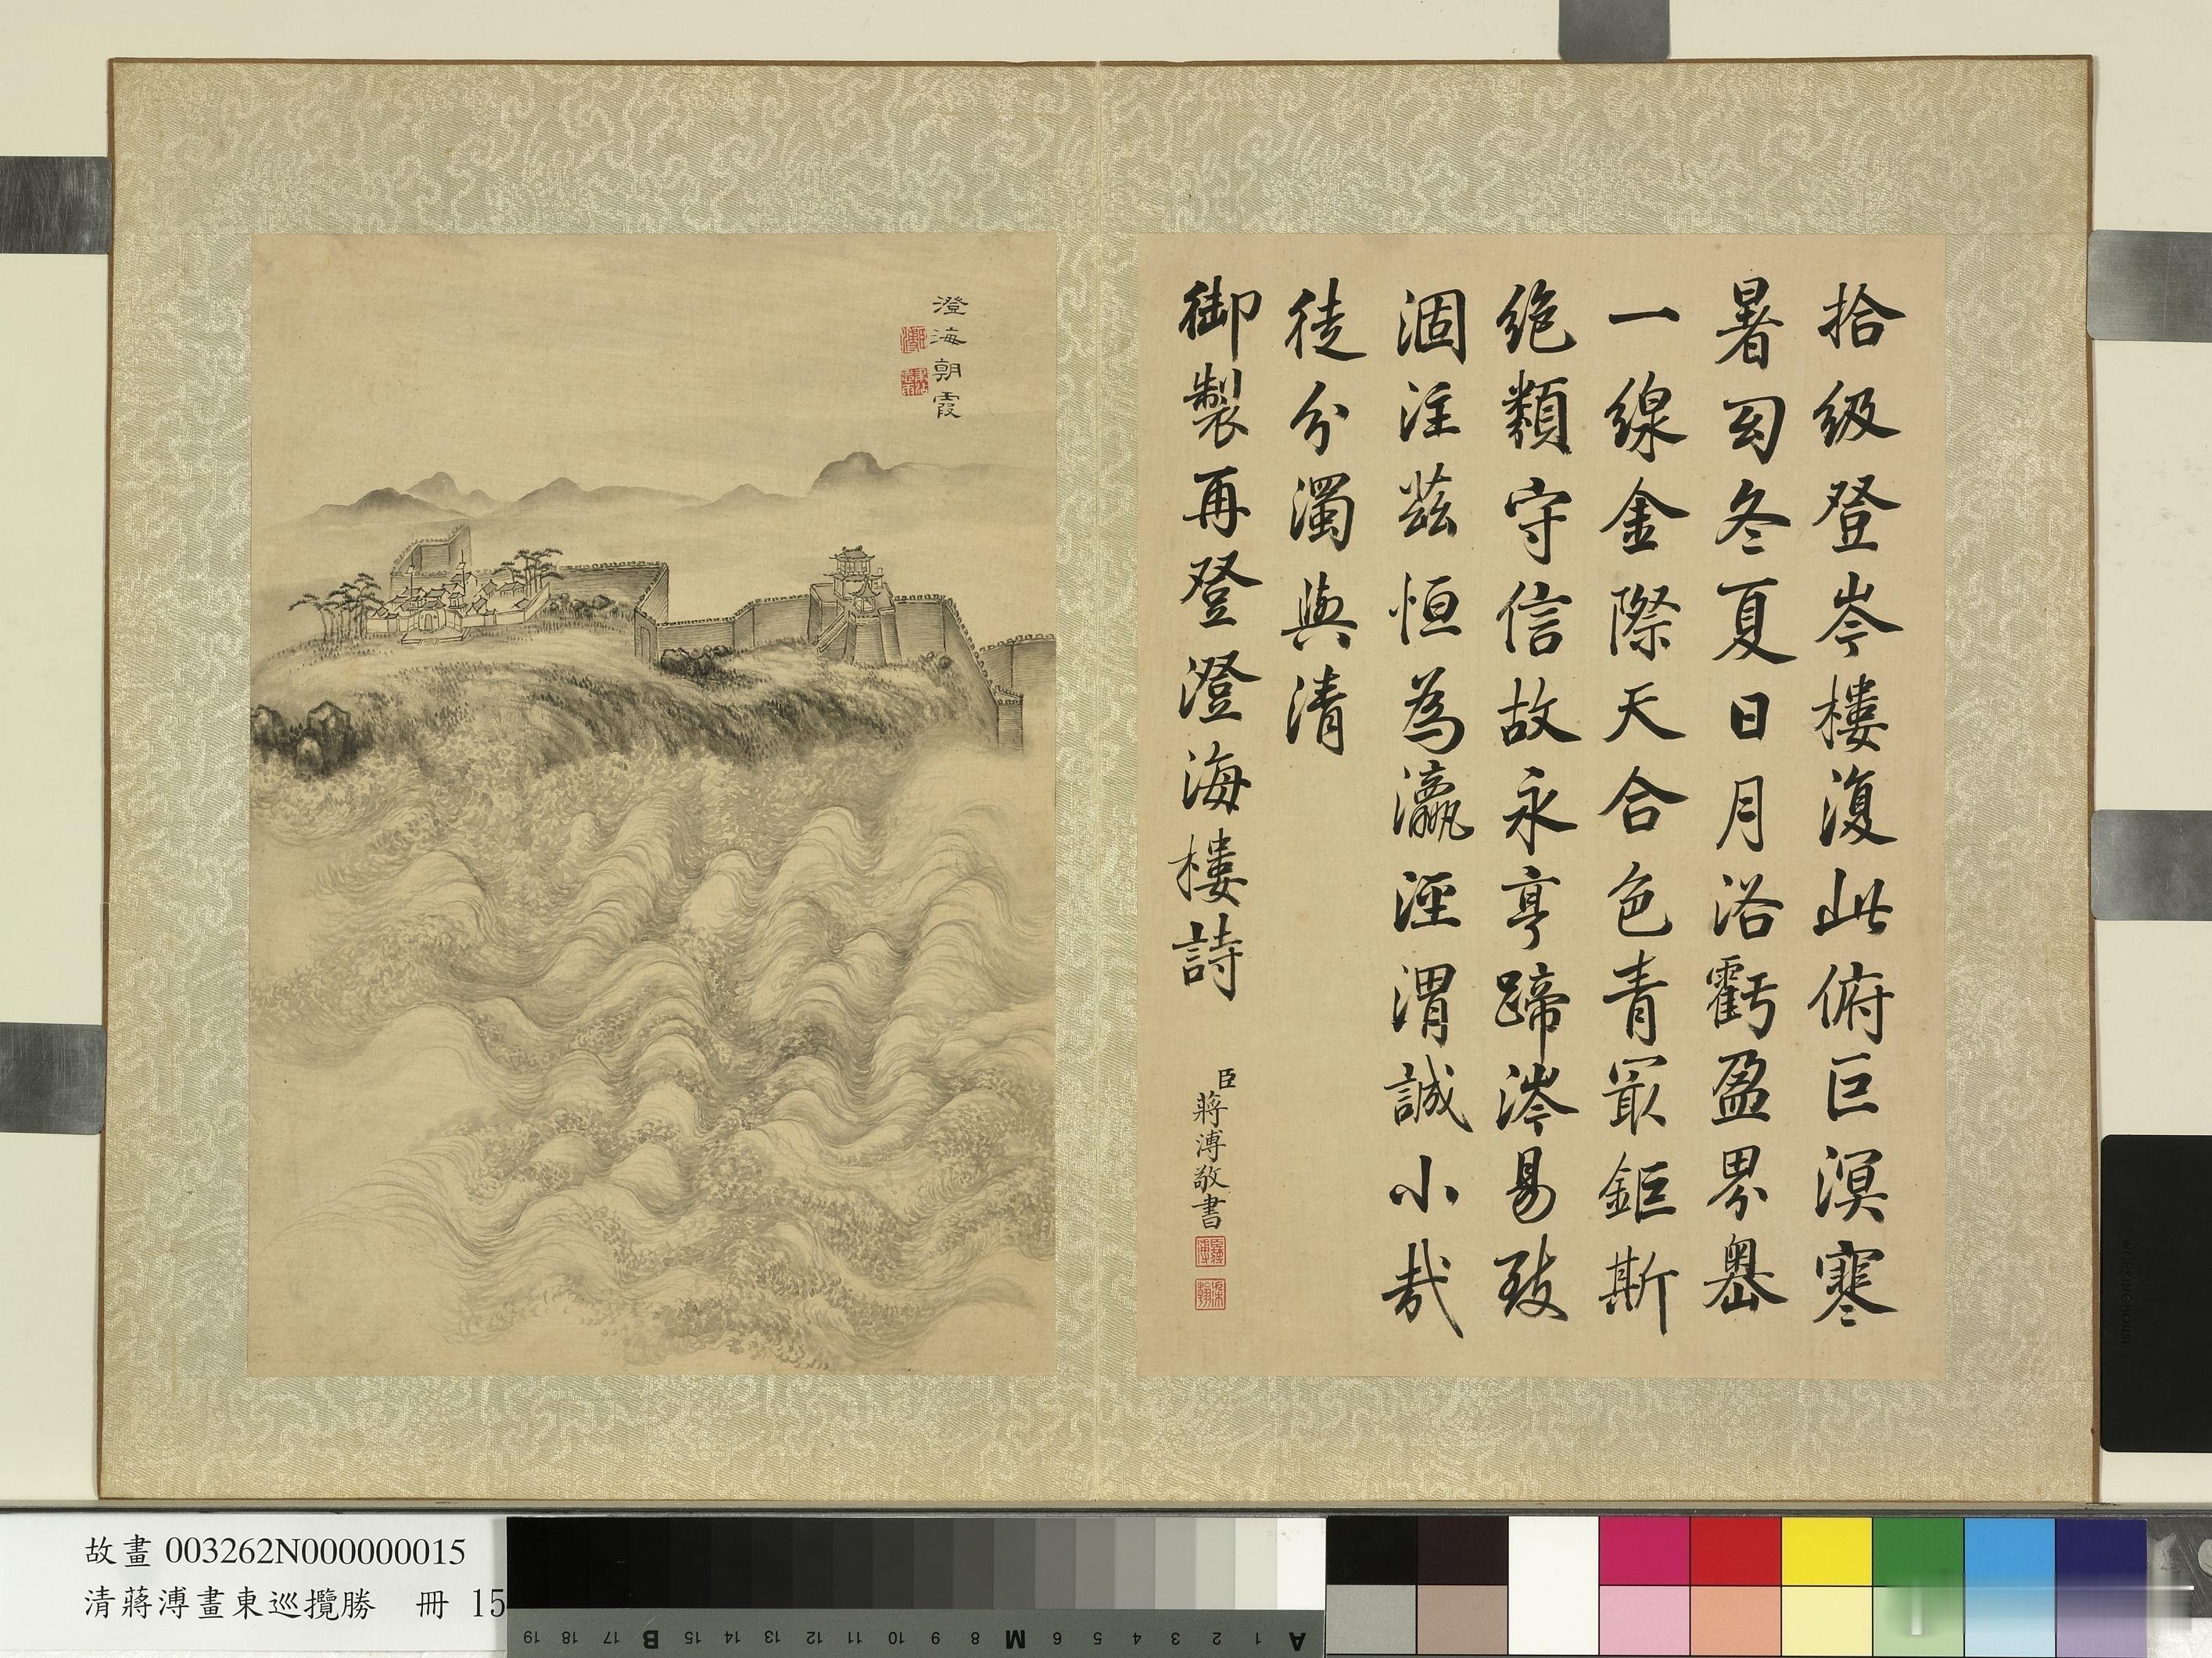 拾級登岑樓復此俯巨溟寒
暑匆冬夏日月浴虧盈界畧
一線金際天合色青最鉅斯
絶類守信故永亨蹄涔易致
涸注茲恒為瀛涇渭誠小哉
徒分濁與清
御製再登澄海樓詩
臣蔣溥敬書
澄海朝霞
故畫 003262N000000015
清蔣溥畫東巡攬勝 冊 15
A 1 2 3 4 5 6 M 8 9 10 11 12 13 14 15 B 17 18 19